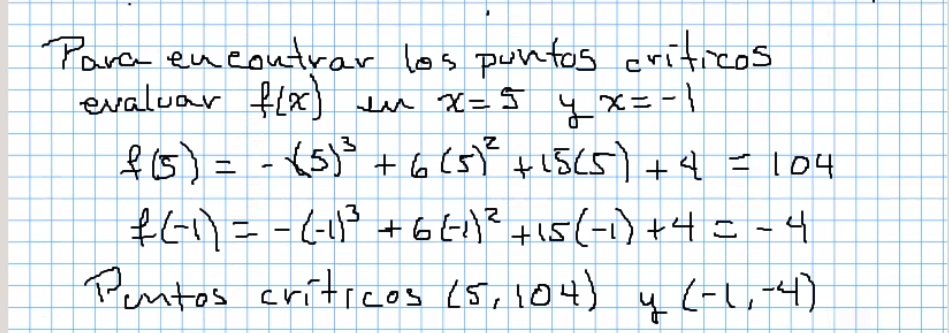 Para encontrar los puntos críticos
evaluar f(x) en x=5 y x=-1
f(5) = -(5)³ + 6(5)² + 15(5) + 4 = 104
f(-1) = -(-1)³ + 6(-1)² + 15(-1) + 4 = -4
Puntos críticos (5, 104) y (-1, -4)